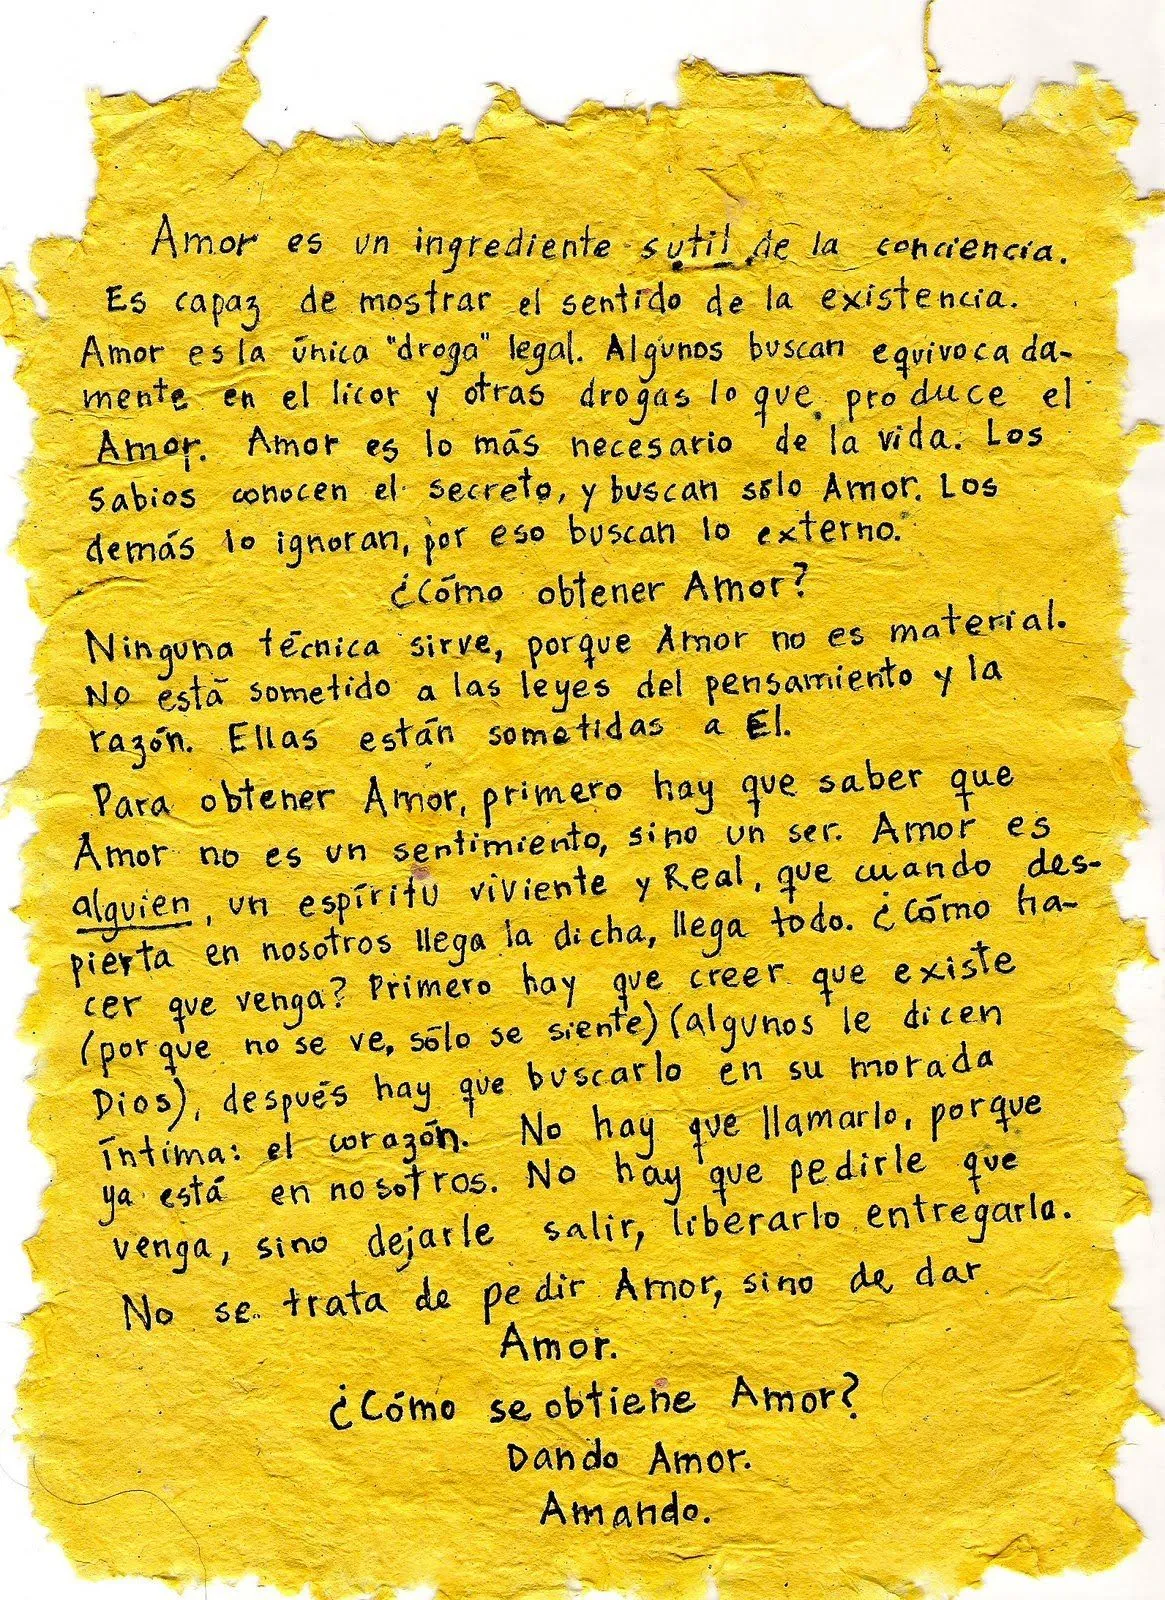 Amor es un ingrediente sutil de la conciencia.
Es capaz de mostrar el sentido de la existencia.
Amor es la única "droga" legal. Algunos buscan equivocada-
mente en el licor y otras drogas lo que produce el
Amor. Amor es lo más necesario de la vida. Los
sabios conocen el secreto, y buscan sólo Amor. Los
demás lo ignoran, por eso buscan lo externo.
¿Cómo obtener Amor?
Ninguna técnica sirve, porque Amor no es material.
No está sometido a las leyes del pensamiento y la
razón. Ellas están sometidas a El.
Para obtener Amor, primero hay que saber que
Amor no es un sentimiento, sino un ser. Amor es
alguien, un espíritu viviente y Real, que cuando des-
pierta en nosotros llega la dicha, llega todo. ¿Cómo ha-
cer que venga? Primero hay que creer que existe
(porque no se ve, sólo se siente) (algunos le dicen
Dios), después hay que buscarlo en su morada
íntima: el corazón. No hay que llamarlo, porque
ya está en nosotros. No hay que pedirle que
venga, sino dejarle salir, liberarlo, entregarlo.
No se trata de pedir Amor, sino de dar
Amor.
¿Cómo se obtiene Amor?
Dando Amor.
Amando.